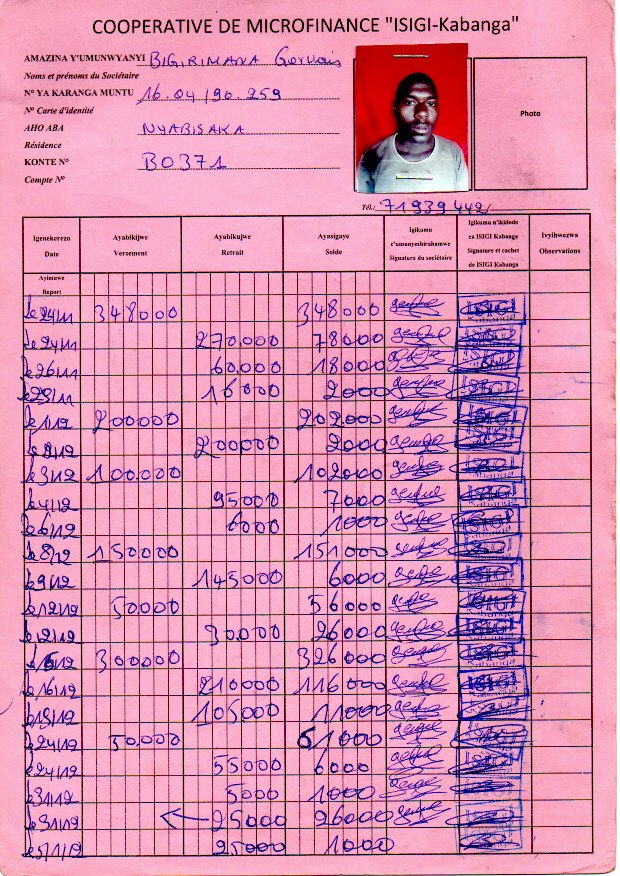 COOPERATIVE DE MICROFINANCE "ISIGI-Kabanga"
AMAZINA Y'UMUNWYANYI BIGIRIMANA Gervais
Noms et prénoms du Sociétaire
N° YA KARANGA MUNTU 16.04/90.259
N° Carte d'identité
AHO ABA NYABISAKA
Résidence
KONTE N° B0371
Compte N°
Photo
Tél.: 71939442
Igenekerezo Date
Ayabikijwe Versement
Ayabikujwe Retrait
Ayasigaye Solde
Igikumu c'umunyeshirahamwe Signature du sociétaire
Igikumu n'ikidodo ca ISIGI Kabange Signature et cachet de ISIGI Kabanga
Ivyihwezwa Observations
Ayimuwe
Report
Le 24/11 348000 348000 ISIGI Kabanga
Le 24/11 270.000 78000
Le 26/11 60.000 18000
Le 28/11 16000 2000
Le 1/12 200.000 202000
Le 2/12 200.000 2000
Le 3/12 100.000 102000
Le 4/12 95000 7000
Le 6/12 6000 1000
Le 8/12 150.000 151000
Le 9/12 145000 6000
Le 12/12 50.000 56000
Le 12/12 30.000 26000
Le 15/12 300000 326000
Le 16/12 210000 116000
Le 19/12 105000 11000
Le 24/12 50.000 61000
Le 24/12 55000 6000
Le 31/12 5000 1000
Le 31/12 25000 26000
Le 5/1/12 25000 1000